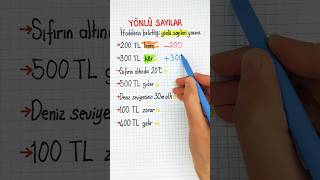 YÖNLÜ SAYILAR
İfadelerin belirttiği yönlü sayıları yazınız.
→200 TL borç → -200
→300 TL kâr → +300
→Sıfırın altında 20°C →
→500 TL gider →
→Deniz seviyesinin 30m altı
→100 TL zarar →
→400 TL gelir →
Sıfırın altında
500 TL
Deniz seviye
→100 TL